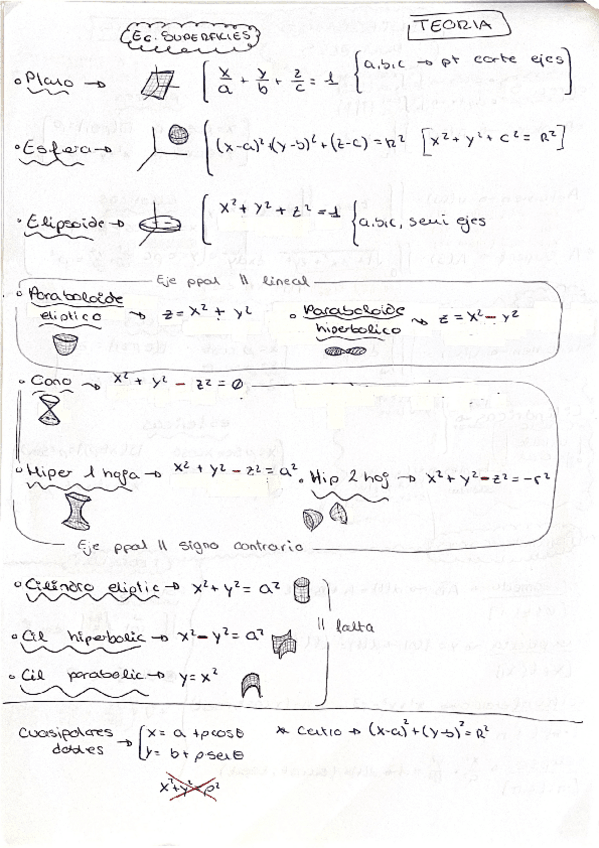 Ec. SUPERFICIES
TEORIA
Plano → x/a + y/b + z/c = 1 { a,b,c → pt corte ejes
Esfera → (x-a)² + (y-b)² + (z-c) = R² [x² + y² + c² = R²]
Elipsoide → x² + y² + z² = 1 { a,b,c, semi ejes
Eje ppal || lineal
Paraboloide eliptico → z = x² + y²
Paraboloide hiperbolico → z = x² - y²
Cono → x² + y² - z² = 0
Hiper 1 hoja → x² + y² - z² = a²
Hip 2 hoj → x² + y² - z² = -r²
Eje ppal || signo contrario
Cilindro eliptic → x² + y² = a²
Cil hiperbolic → x² - y² = a²
|| falta
Cil parabolic → y = x²
Cuasipolares dobles → { x = a + ρcosθ
y = b + ρsenθ
* Centro → (x-a)² + (y-b)² = R²
x² + y² = ρ²